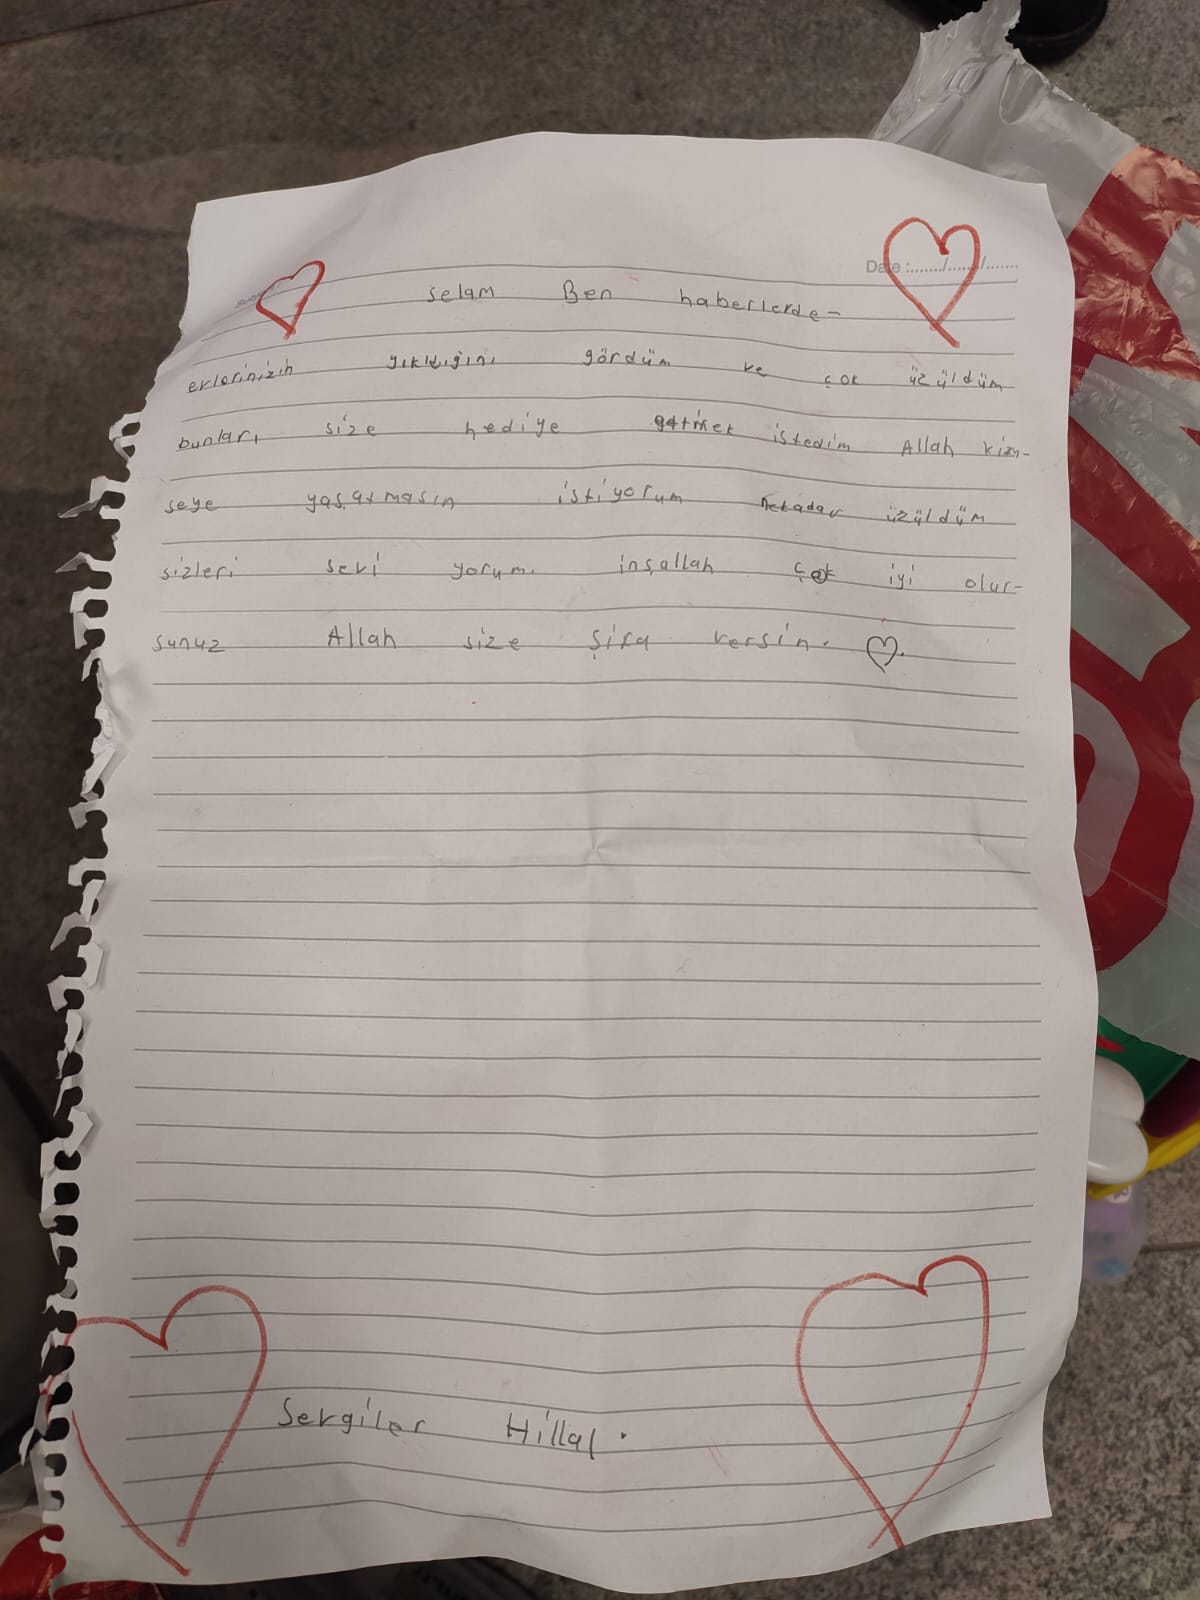 Date :......./......./.......
selam Ben haberlerde-
evlerinizin yıkıldığını gördüm ve çok üzüldüm
bunları size hediye getmek istedim Allah kim-
seye yaşatmasın istiyorum nekadar üzüldüm
sizleri sevi yorum. inşallah çok iyi olur-
sunuz Allah size şifa versin.
Sevgiler Hillal.